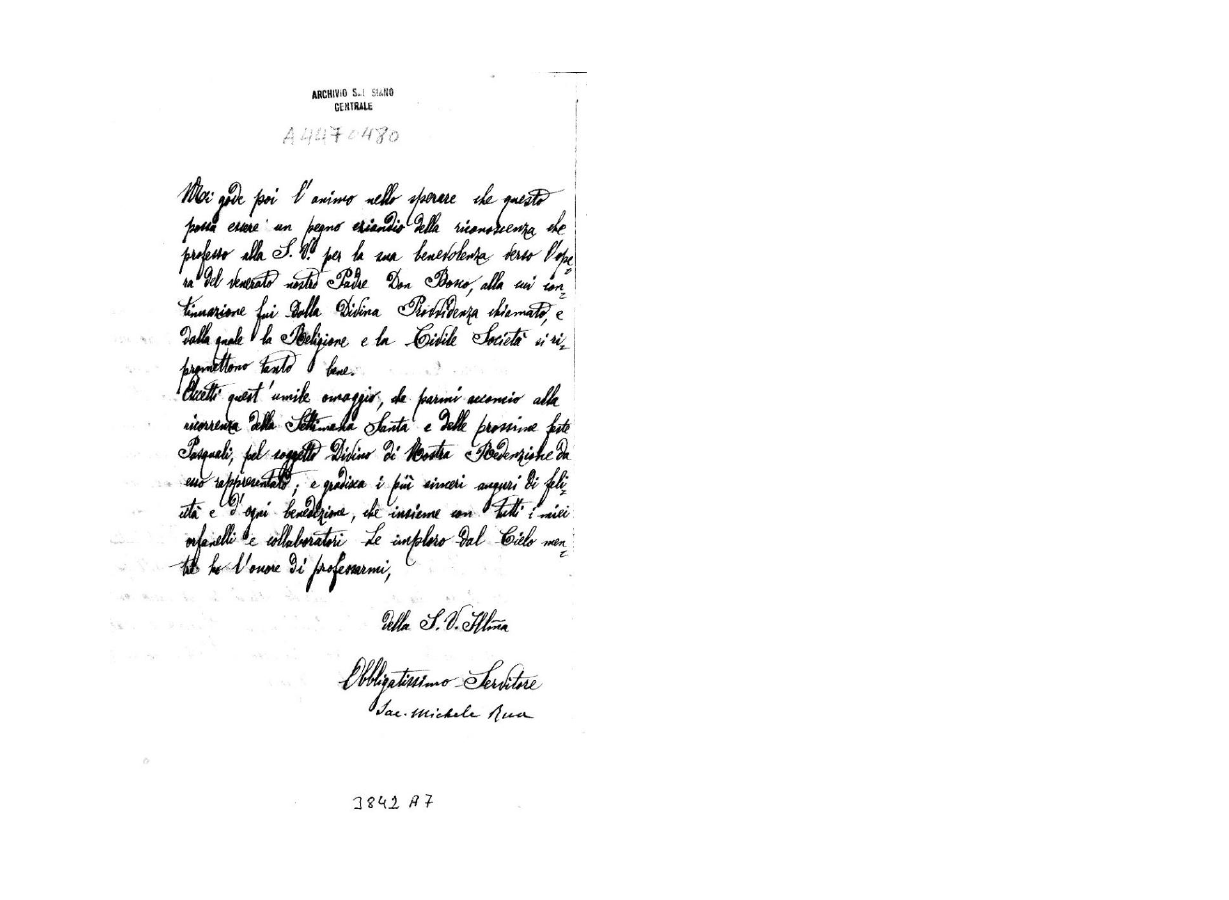 ARCHIVIO SALESIANO
CENTRALE
A4470480
Mi gode poi l'animo nello sperare che questo
possa essere un pegno eziandio della riconoscenza che
professo alla S. V. per la sua benevolenza verso l'ope=
ra del venerato nostro Padre Don Bosco, alla cui con=
tinuazione fui dalla Divina Provvidenza chiamato, e
dalla quale la Religione e la Civile Società si ri=
promettono tanto bene.
Accetti quest'umile omaggio, che parmi acconcio alla
ricorrenza della Settimana Santa e delle prossime feste
Pasquali, pel soggetto Divino di Nostra Redenzione da
esso rappresentato; e gradisca i più sinceri auguri di feli=
cità e d'ogni benedizione, che insieme con tutti i miei
orfanelli e collaboratori Le imploro dal Cielo men=
tre ho l'onore di professarmi,
della S. V. Ill.ma
Obbligatissimo Servitore
Sac. Michele Rua
3842 A7